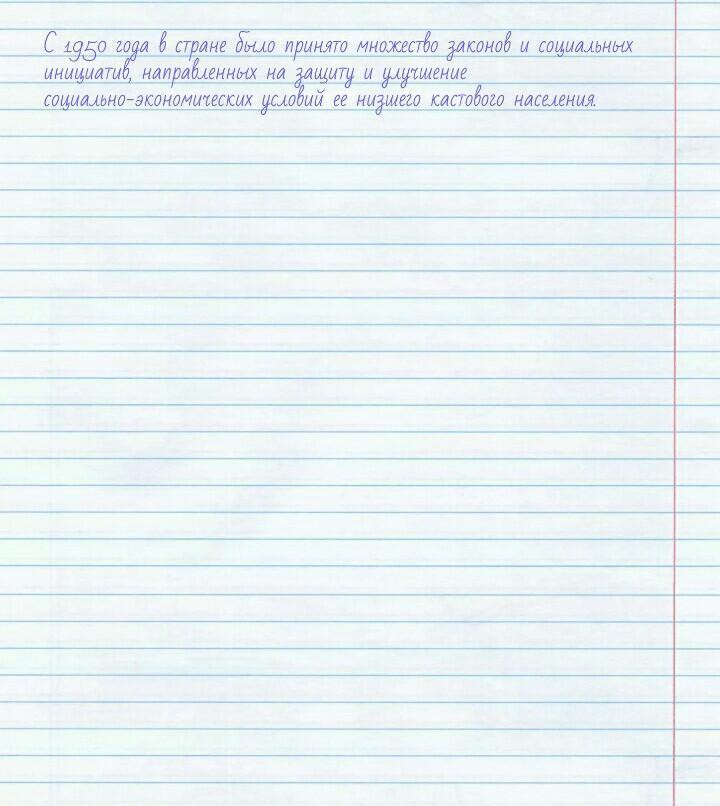 С 1950 года в стране было принято множество законов и социальных
инициатив, направленных на защиту и улучшение
социально-экономических условий ее низшего кастового населения.